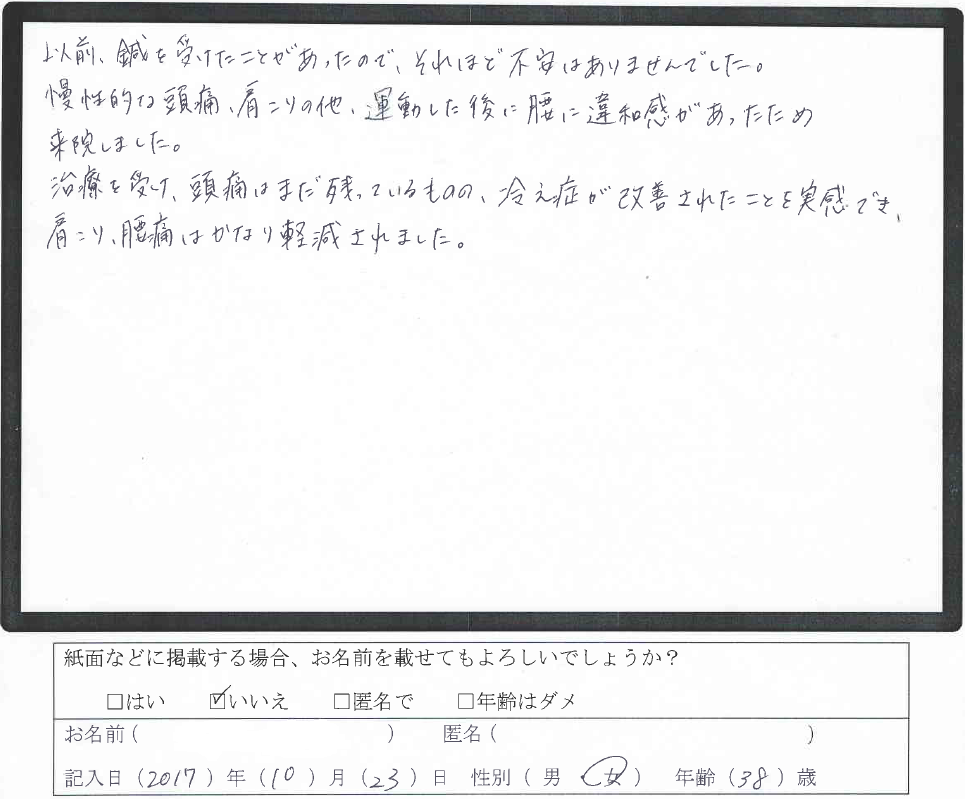 以前、鍼を受けたことがあったので、それほど不安はありませんでした。
慢性的な頭痛、肩こりの他、運動した後に腰に違和感があったため
来院しました。
治療を受け、頭痛はまだ残っているものの、冷え症が改善されたことを実感でき、
肩こり、腰痛はかなり軽減されました。
紙面などに掲載する場合、お名前を載せてもよろしいでしょうか？
□はい ☑いいえ □匿名で □年齢はダメ
お名前（ ） 匿名（ ）
記入日（2017）年（10）月（23）日 性別（ 男 ・ 女 ） 年齢（38）歳